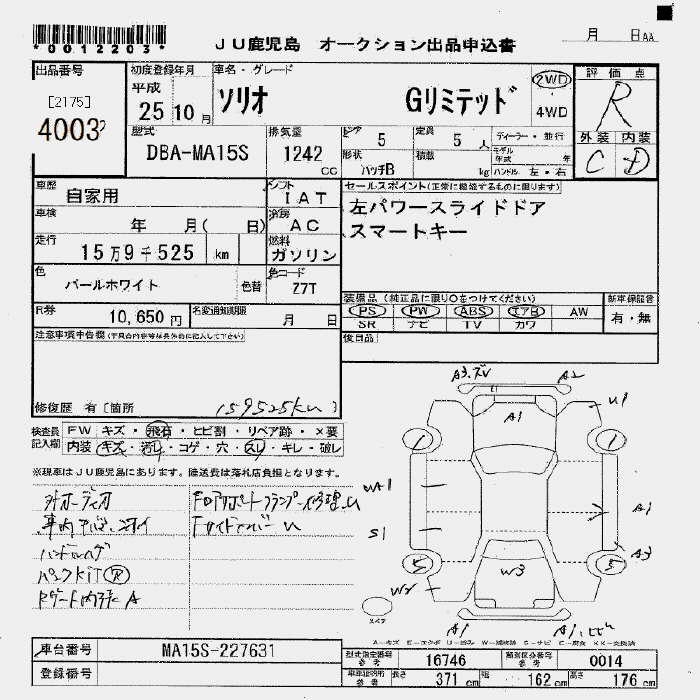 *00122203*
JU鹿児島 オークション出品申込書
月 日AA
出品番号
[2175]
4003
初度登録年月
平成
25 10月
車名・グレード
ソリオ Gリミテッド
2WD
4WD
評価点
R
外装 内装
C D
型式
DBA-MA15S
排気量
1242
CC
ドア
5
定員
5 人
形状
ハッチB
積載
kg
ディーラー・並行
モデル年式 年
ハンドル 左・右
車歴
自家用
シフト
IAT
車検
年 月( 日)
冷房
AC
走行
15万9千525 km
燃料
ガソリン
色
パールホワイト
色替
色コード
Z7T
R券
10,650円
名変通知期限
月 日
セールスポイント(正常に機能するものに限ります)
左パワースライドドア
スマートキー
装備品(純正品に限り○をつけてください)
PS PW ABS エアB AW
SR ナビ TV カワ
新車保証書
有・無
後日品
注意事項申告欄
修復歴 有[箇所
159525km
検査員記入欄
FW キズ・飛石・ヒビ割・リペア跡・×要
内装 キズ・汚レ・コゲ・穴・スレ・キレ・破レ
※現車はJU鹿児島にあります。陸送費は落札店負担となります。
外オーディオ
ハンドルハゲ
パンクKIT R
A3.
A2
A1
U1
1
1
WA1
S1
A1
A3
5
5
W2
W3
A1
スペア
A1
A-キズ E-エクボ U-凹み W-補修跡 S-サビ C-腐食 XX-交換済
車台番号
MA15S-227631
登録番号
型式指定番号
参考
16746
類別区分番号
参考
0014
長さ 371 cm 幅 162 cm 高さ 176 cm